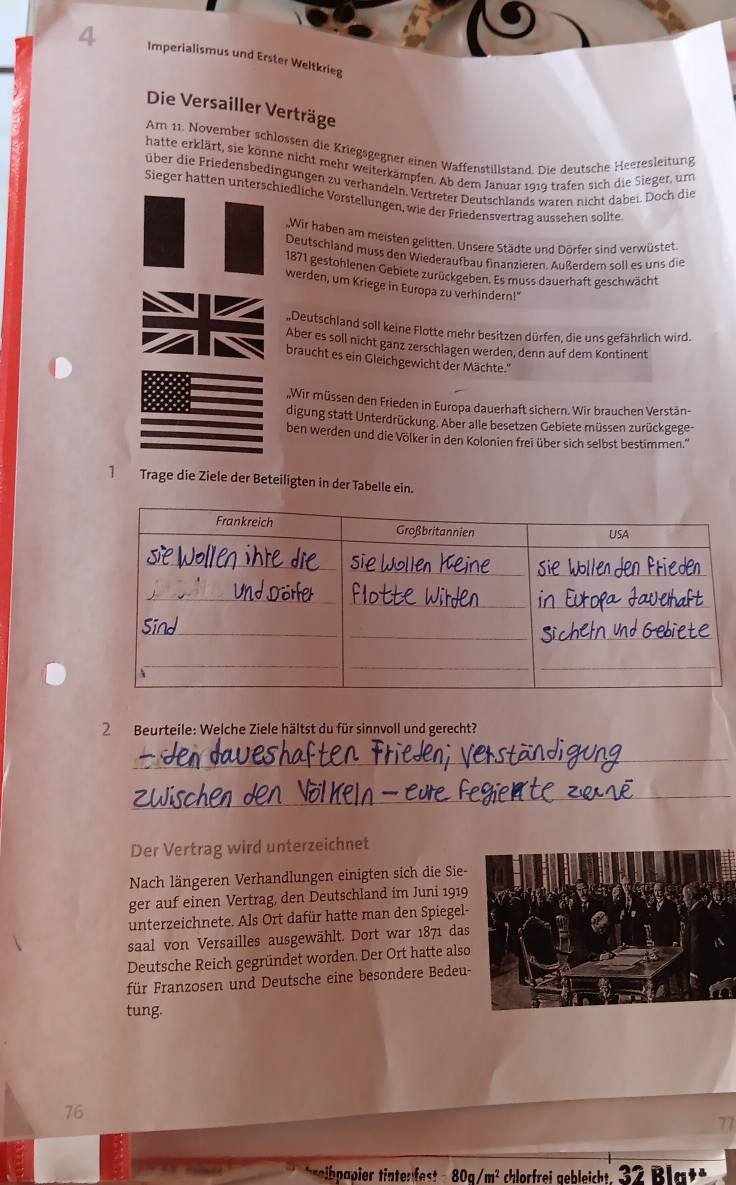 4
Imperialismus und Erster Weltkrieg
Die Versailler Verträge
Am 11. November schlossen die Kriegsgegner einen Waffenstillstand. Die deutsche Heeresleitung
hatte erklärt, sie könne nicht mehr weiterkämpfen. Ab dem Januar 1919 trafen sich die Sieger, um
über die Friedensbedingungen zu verhandeln. Vertreter Deutschlands waren nicht dabei. Doch die
Sieger hatten unterschiedliche Vorstellungen, wie der Friedensvertrag aussehen sollte.
„Wir haben am meisten gelitten. Unsere Städte und Dörfer sind verwüstet.
Deutschland muss den Wiederaufbau finanzieren. Außerdem soll es uns die
1871 gestohlenen Gebiete zurückgeben. Es muss dauerhaft geschwächt
werden, um Kriege in Europa zu verhindern!"
„Deutschland soll keine Flotte mehr besitzen dürfen, die uns gefährlich wird.
Aber es soll nicht ganz zerschlagen werden, denn auf dem Kontinent
braucht es ein Gleichgewicht der Mächte."
„Wir müssen den Frieden in Europa dauerhaft sichern. Wir brauchen Verstän-
digung statt Unterdrückung. Aber alle besetzen Gebiete müssen zurückgege-
ben werden und die Völker in den Kolonien frei über sich selbst bestimmen."
1 Trage die Ziele der Beteiligten in der Tabelle ein.
Frankreich Großbritannien USA
sie wollen ihre die sie wollen Keine sie wollen den frieden
und Dörfer flotte wirden in Europa dauerhaft
sind sichern und Gebiete
2 Beurteile: Welche Ziele hältst du für sinnvoll und gerecht?
- den daueshaften Frieden; verständigung
zwischen den Völkeln - eure
Der Vertrag wird unterzeichnet
Nach längeren Verhandlungen einigten sich die Sie-
ger auf einen Vertrag, den Deutschland im Juni 1919
unterzeichnete. Als Ort dafür hatte man den Spiegel-
saal von Versailles ausgewählt. Dort war 1871 das
Deutsche Reich gegründet worden. Der Ort hatte also
für Franzosen und Deutsche eine besondere Bedeu-
tung.
76
77
tintenfest - 80g/m² chlorfrei gebleicht, 32